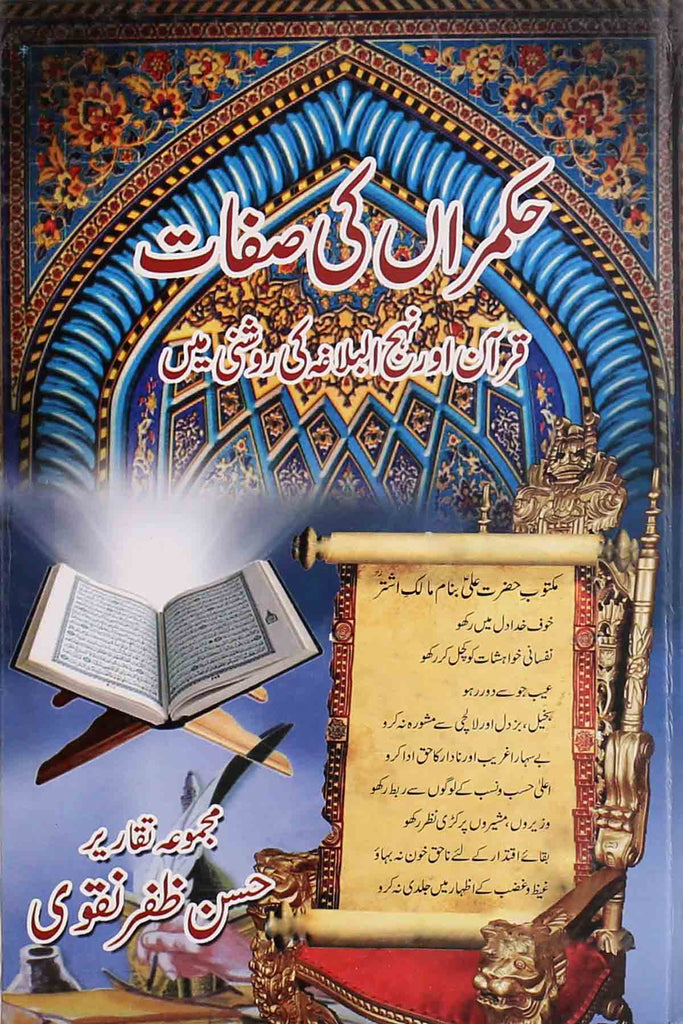 حکمراں کی صفات
قرآن اور نہج البلاغہ کی روشنی میں
مکتوب حضرت علیؑ بنام مالک اشترؓ
خوف خدا دل میں رکھو
نفسانی خواہشات کو کچل کر رکھو
عیب جو سے دور رہو
بخیل، بزدل اور لالچی سے مشورہ نہ کرو
بے سہارا غریب اور نادار کا حق ادا کرو
اعلیٰ حسب و نسب کے لوگوں سے ربط رکھو
وزیروں، مشیروں پر کڑی نظر رکھو
بقائے اقتدار کے لئے ناحق خون نہ بہاؤ
غیظ و غضب کے اظہار میں جلدی نہ کرو
مجموعہ تقاریر
حسن ظفر نقوی